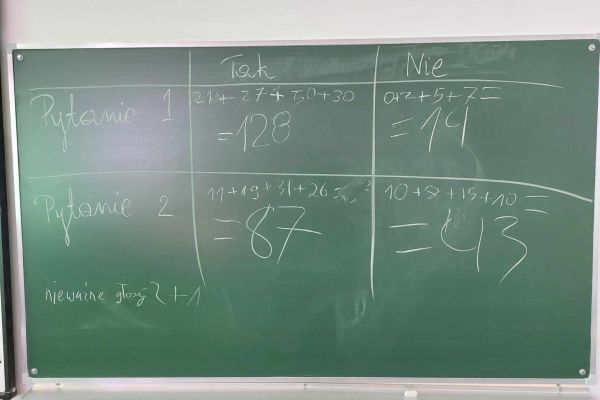 Tak Nie
Pytanie 1 21+27+50+30 0+2+5+7=
=128 =14
Pytanie 2 11+19+31+26= 10+8+15+10=
=87 =43
nieważne głosy 2+1